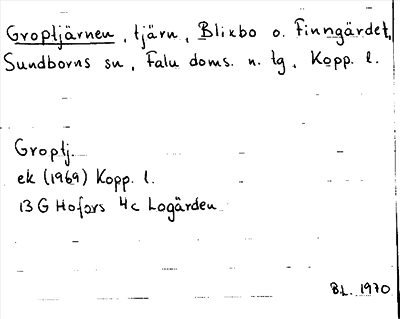 Groptjärnen, tjärn, Blixbo o. Finngärdet,
Sundborns sn, Falu doms. n. tg, Kopp. l.
Groptj.
ek (1969) Kopp. l.
13 G Hofors 4c Logärden
B.L. 1970